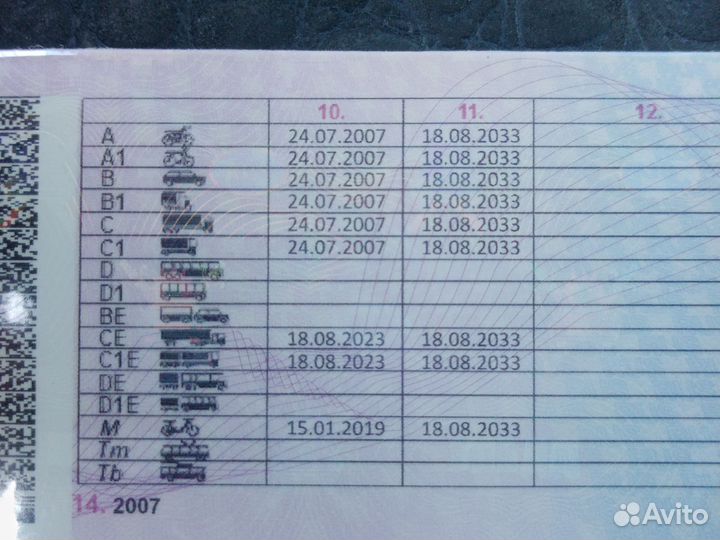 10. 11. 12.
A 24.07.2007 18.08.2033
A1 24.07.2007 18.08.2033
B 24.07.2007 18.08.2033
B1 24.07.2007 18.08.2033
C 24.07.2007 18.08.2033
C1 24.07.2007 18.08.2033
D
D1
BE
CE 18.08.2023 18.08.2033
C1E 18.08.2023 18.08.2033
DE
D1E
M 15.01.2019 18.08.2033
Tm
Tb
14. 2007
Avito